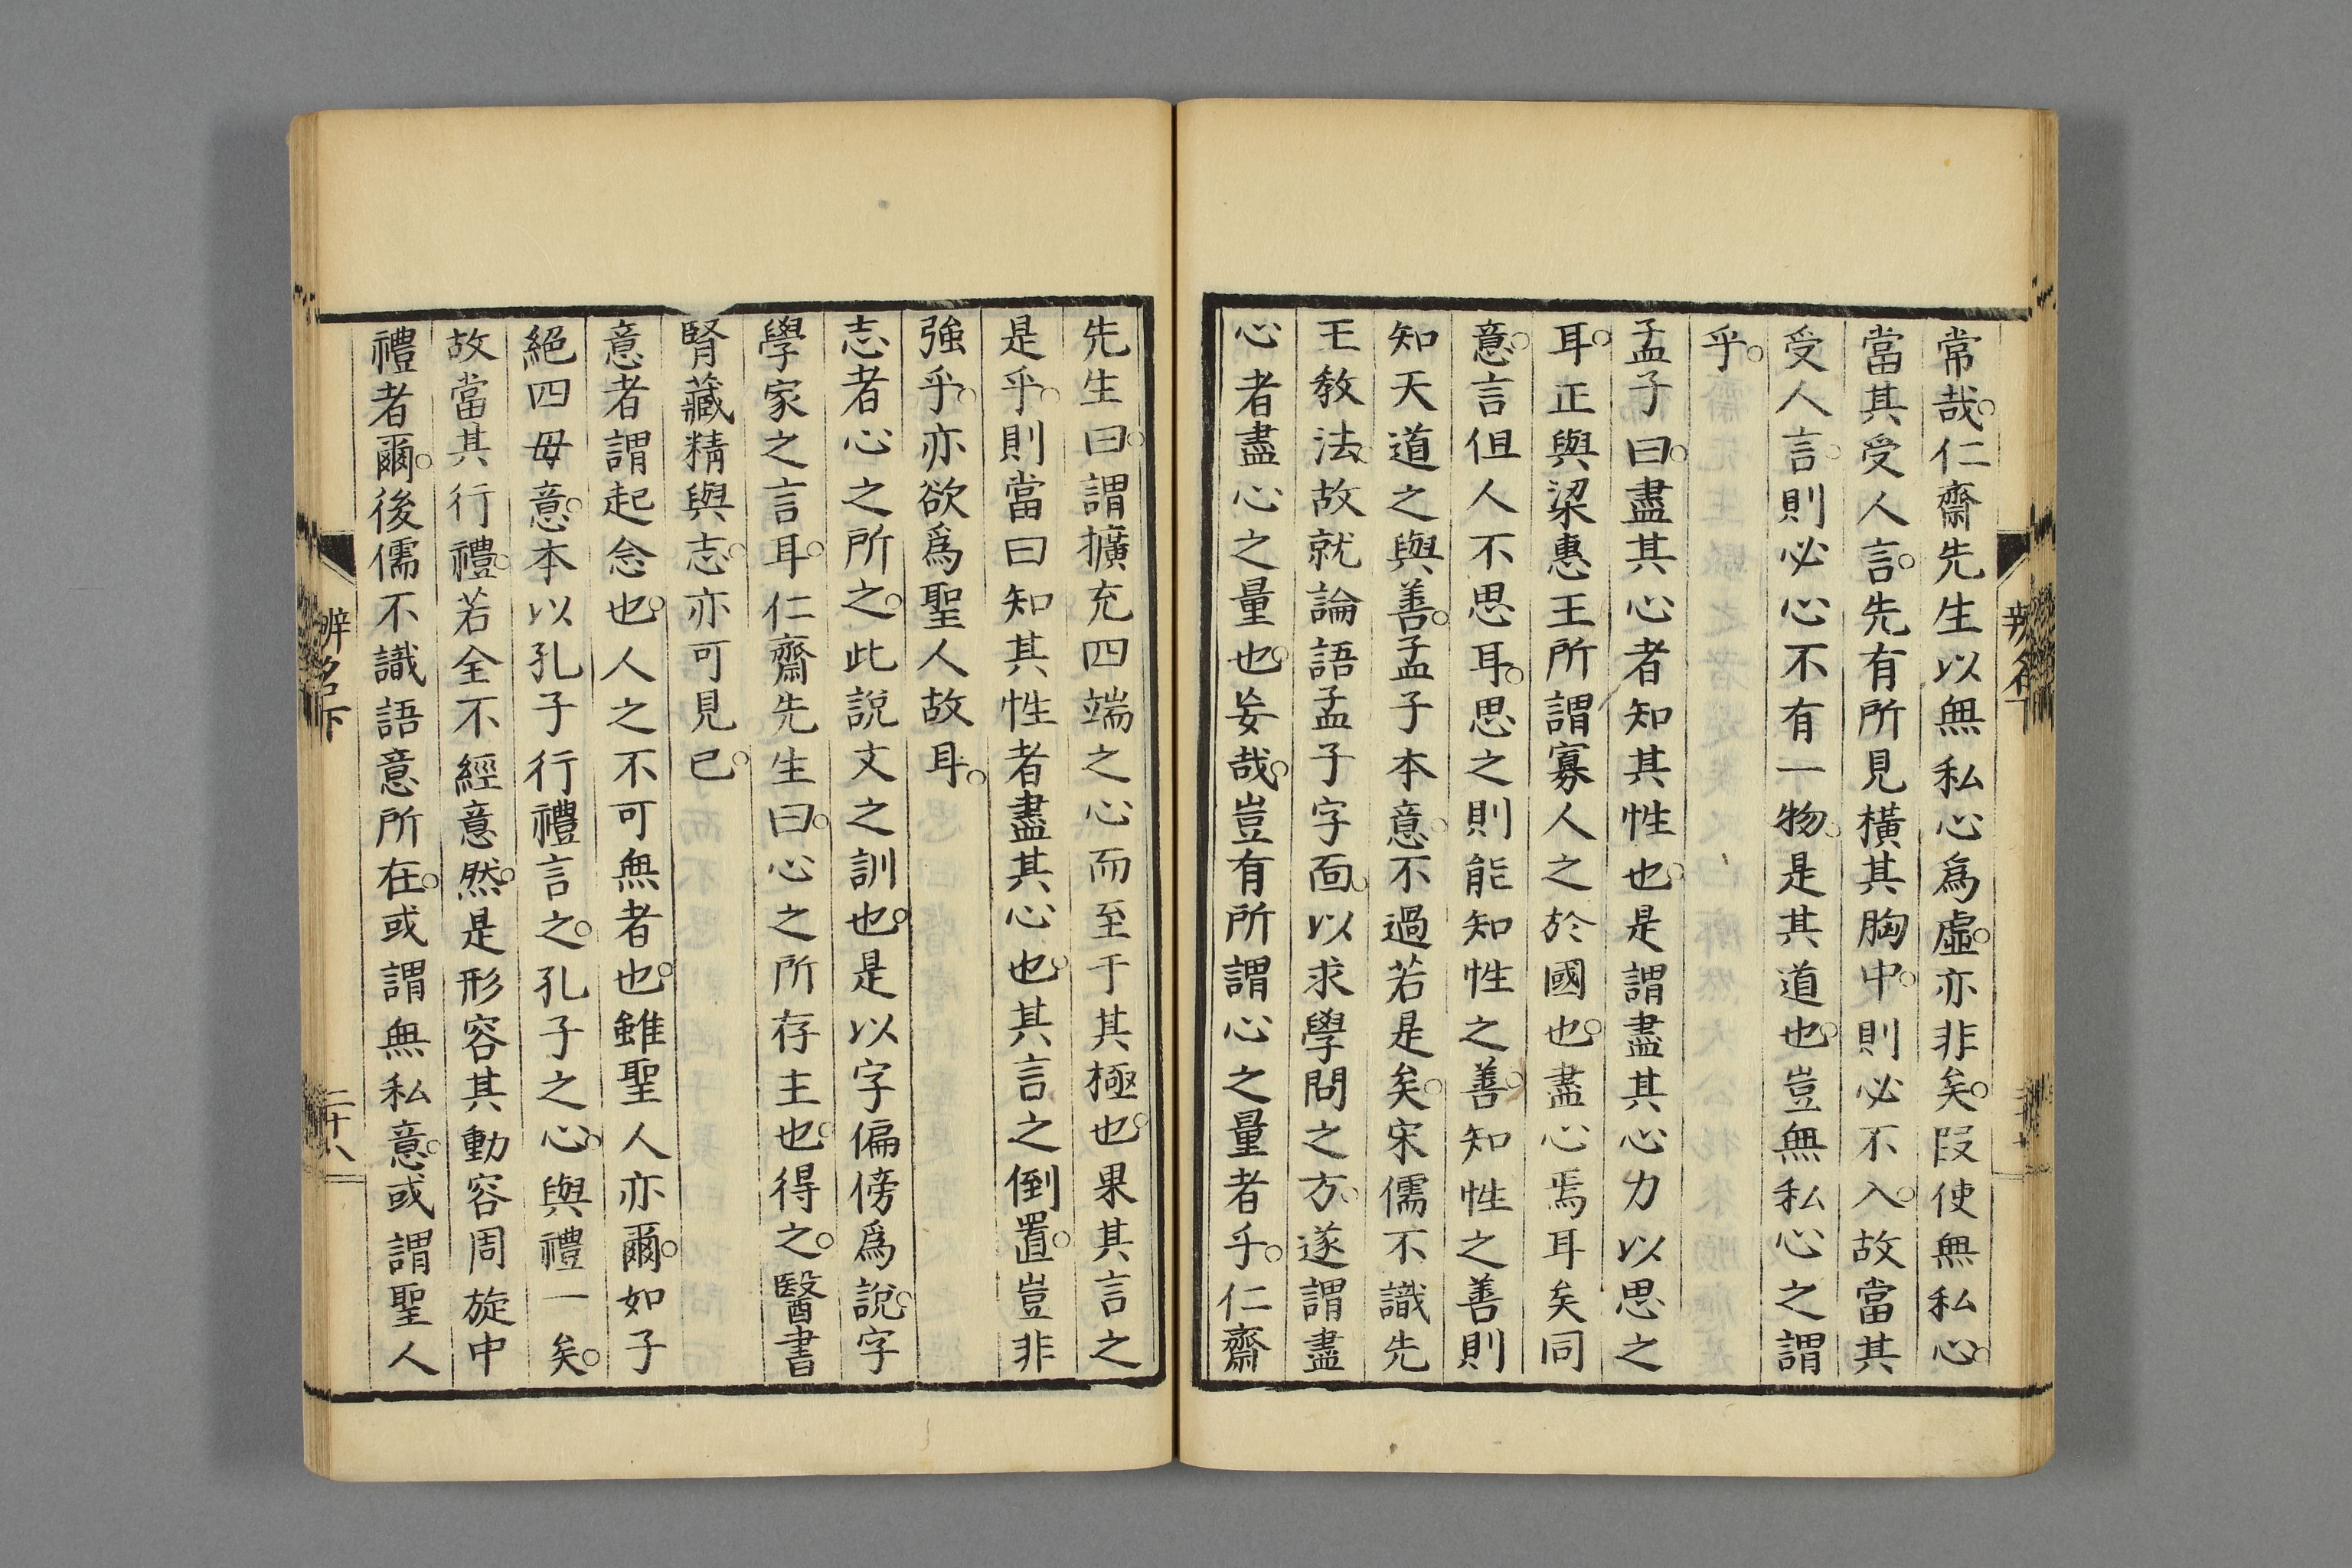 常哉。仁齋先生以無私心爲虛。亦非矣。叚使無私心。
當其受人言。先有所見橫其胸中。則必不入。故當其
受人言。則必心不有一物。是其道也。豈無私心之謂
乎。
孟子曰。盡其心者知其性也。是謂盡其心力以思之
耳。正與梁惠王所謂寡人之於國也。盡心焉耳矣同
意。言但人不思耳。思之則能知性之善。知性之善則
知天道之與善。孟子本意。不過若是矣。宋儒不識先
王教法。故就論語孟子字面。以求學問之方。遂謂盡
心者盡心之量也。妄哉。豈有所謂心之量者乎。仁齋
先生曰。謂擴充四端之心而至于其極也。果其言之
是乎。則當曰知其性者盡其心也。其言之倒置。豈非
強乎。亦欲爲聖人故耳。
志者心之所之。此說文之訓也。是以字偏傍爲說。字
學家之言耳。仁齋先生曰。心之所存主也。得之。醫書
腎藏精與志。亦可見已。
意者謂起念也。人之不可無者也。雖聖人亦爾。如子
絕四毋意。本以孔子行禮言之。孔子之心。與禮一矣。
故當其行禮。若全不經意然。是形容其動容周旋中
禮者爾。後儒不識語意所在。或謂無私意。或謂聖人
辨名下
二十八